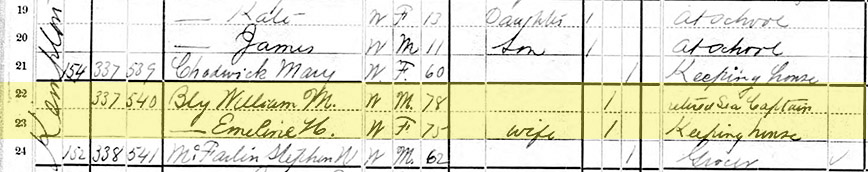 19 — Kate W F 13 Daughter 1 At School
20 — James W M 11 Son 1 At School
21 154 337 539 Chadwick Mary W F. 60 1 Keeping house
22 337 540 Bly William M. W M. 78 1 retired Sea Captain
23 — Emeline H. W F 75 wife 1 Keeping house
24 152 338 541 McFarlin Stephen N W M. 62 1 Grocer ✓